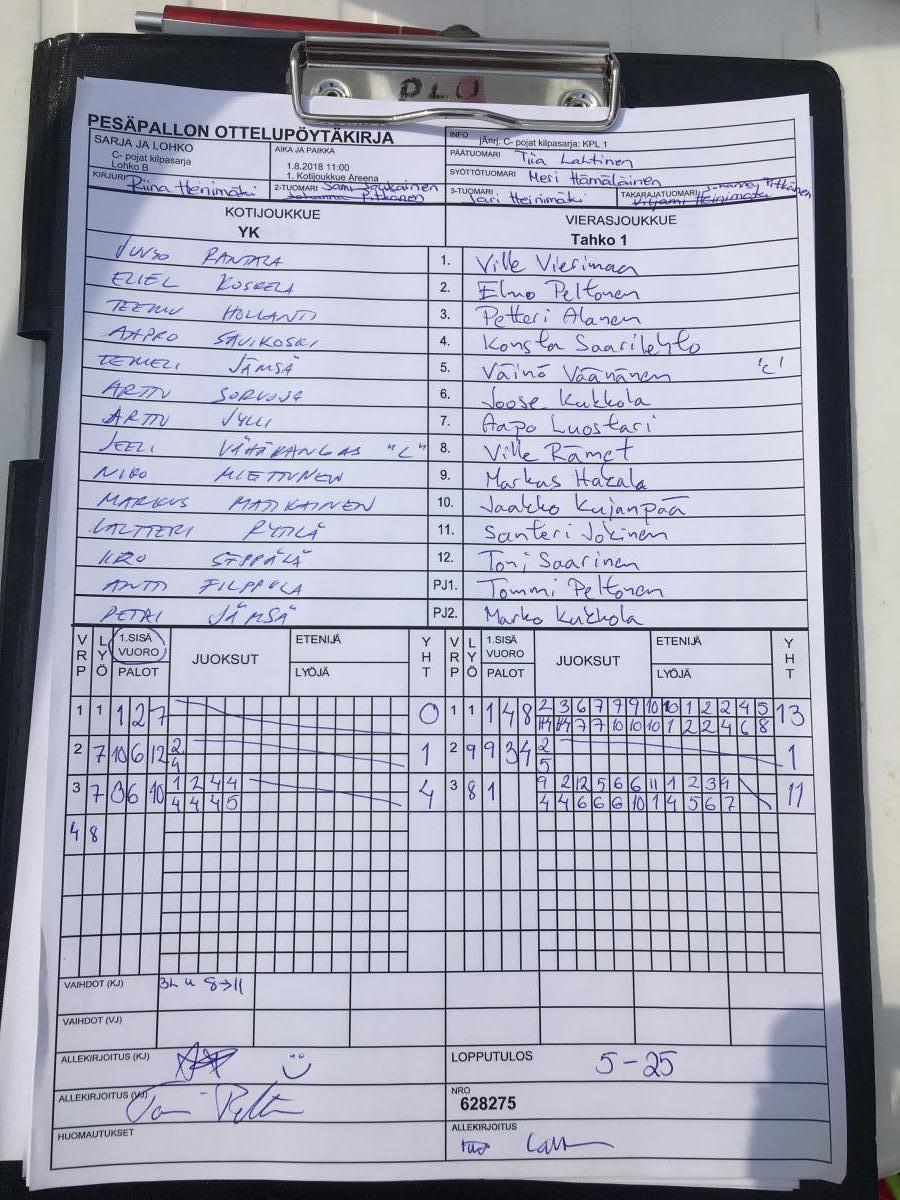 PESÄPALLON OTTELUPÖYTÄKIRJA
SARJA JA LOHKO
C- pojat kilpasarja
Lohko B
AIKA JA PAIKKA
1.8.2018 11:00
1. Kotijoukkue Areena
INFO
jÄnrj. C- pojat kilpasarja: KPL 1
PÄÄTUOMARI Tiia Lahtinen
SYÖTTÖTUOMARI Meri Hämäläinen
KIRJURI Riina Heinimäki
2-TUOMARI Sami
Johanna Pitkänen
3-TUOMARI Jari Heinimäki
TAKARAJATUOMARI Johanna Pitkänen
Viljami Heinimäki
KOTIJOUKKUE
YK
VIERASJOUKKUE
Tahko 1
JUUSO RANTALA 1. Ville Vierimaa
ELIEL KOSKELA 2. Elmo Peltonen
TEEMU HOLLANTI 3. Petteri Alanen
AAPRO SAVIKOSKI 4. Konsta Saarilehto
TEMELI JÄMSÄ 5. Väinö Väänänen "C"
ARTTU SORVOJA 6. Joose Kukkola
ARTTU JYLLI 7. Aapo Luostari
JEELI VÄHÄKANGAS "C" 8. Ville Rämet
NIKO MIETTUNEN 9. Markus Hakala
MARKUS MATIKAINEN 10. Jaakko Kujanpää
VALTTERI RYTILÄ 11. Santeri Jokinen
IIRO SEPPÄLÄ 12. Toni Saarinen
ANTTI FILPPULA PJ1. Tommi Peltonen
PETRI JÄMSÄ PJ2. Marko Kukkola
VRP LYÖ 1.SISÄ VUORO PALOT JUOKSUT ETENIJÄ LYÖJÄ YHT VRP LYÖ 1.SISÄ VUORO PALOT JUOKSUT ETENIJÄ LYÖJÄ YHT
1 1 1 2 7 0 1 1 1 4 8 2 3 6 7 7 9 10 10 1 2 2 4 5 13
7 7 10 10 10 1 2 2 4 6 8
2 7 10 6 12 2 1 2 9 9 3 4 2 1
4 5
3 7 6 10 1 2 4 4 4 3 8 1 9 2 12 5 6 6 11 1 2 3 4 11
4 4 4 5 4 4 6 6 6 10 1 4 5 6 7
4 8
VAIHDOT (KJ) 8→11
VAIHDOT (VJ)
ALLEKIRJOITUS (KJ)
LOPPUTULOS 5-25
ALLEKIRJOITUS (VJ)
NRO
628275
HUOMAUTUKSET
ALLEKIRJOITUS